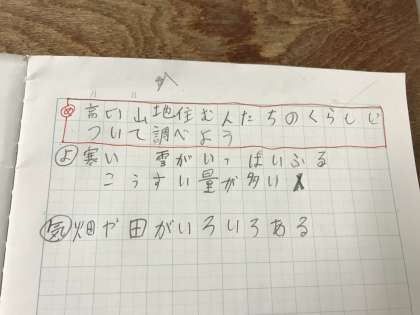 め 高い山地住む人たちのくらしに
ついて調べよう
よ 寒い 雪がいっぱいふる
こうすい量が多い
気 畑や田がいろいろある